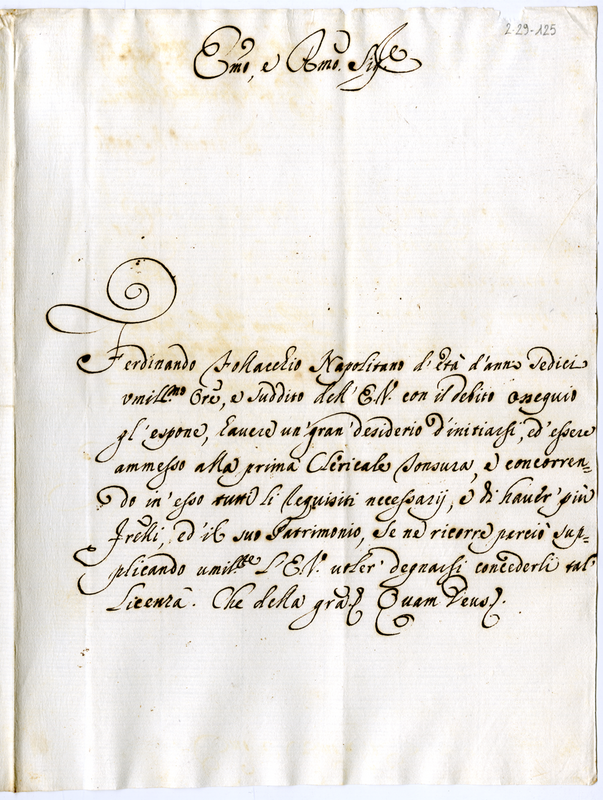 2-29-125
Emo, e Rmo. Sig.re
Ferdinando Napolitano d'età d'anni sedici
vmill.mo Ore, e suddito dell'E.V. con il debito osseguio
gl'espone, havere un'gran'desiderio d'initiarsi, ed'essere
ammesso alla prima Clericale Tonsura, e concorren=
do in'esso tutti li requisiti necessarij, e di haver' più
frelli, ed'il suo Patrimonio, se ne ricorre perciò sup=
plicando umil.te L'E.V. voler' degnarsi concederli tal
licenza. Che della gra Quam Deus.